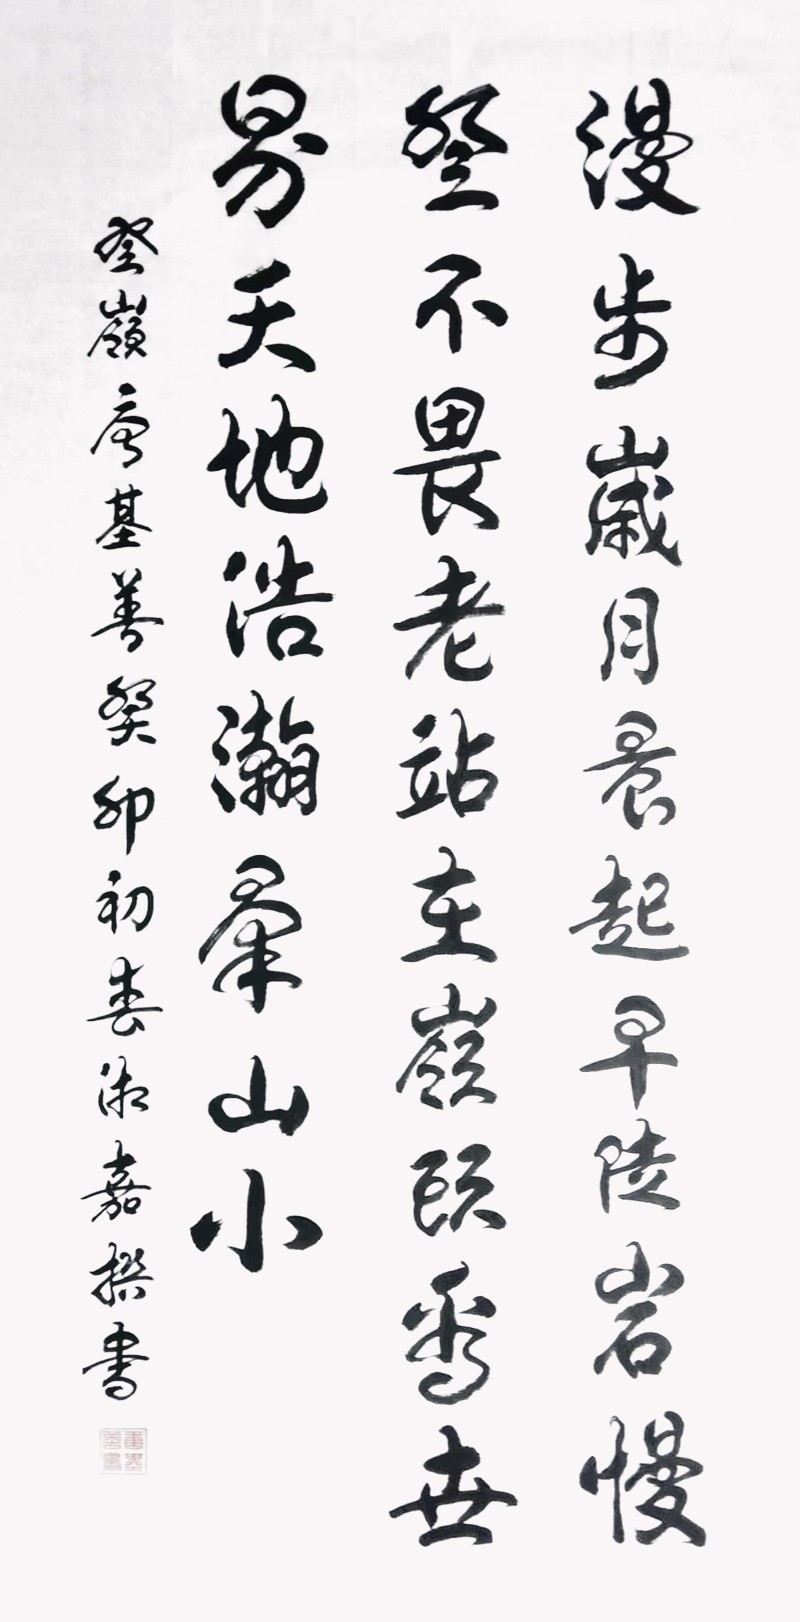 漫步嵗月晨起早陡岩慢
登不畏老站在嶺頭看世
界天地浩瀚羣山小
登嶺 基善癸卯初春湘嘉撰書